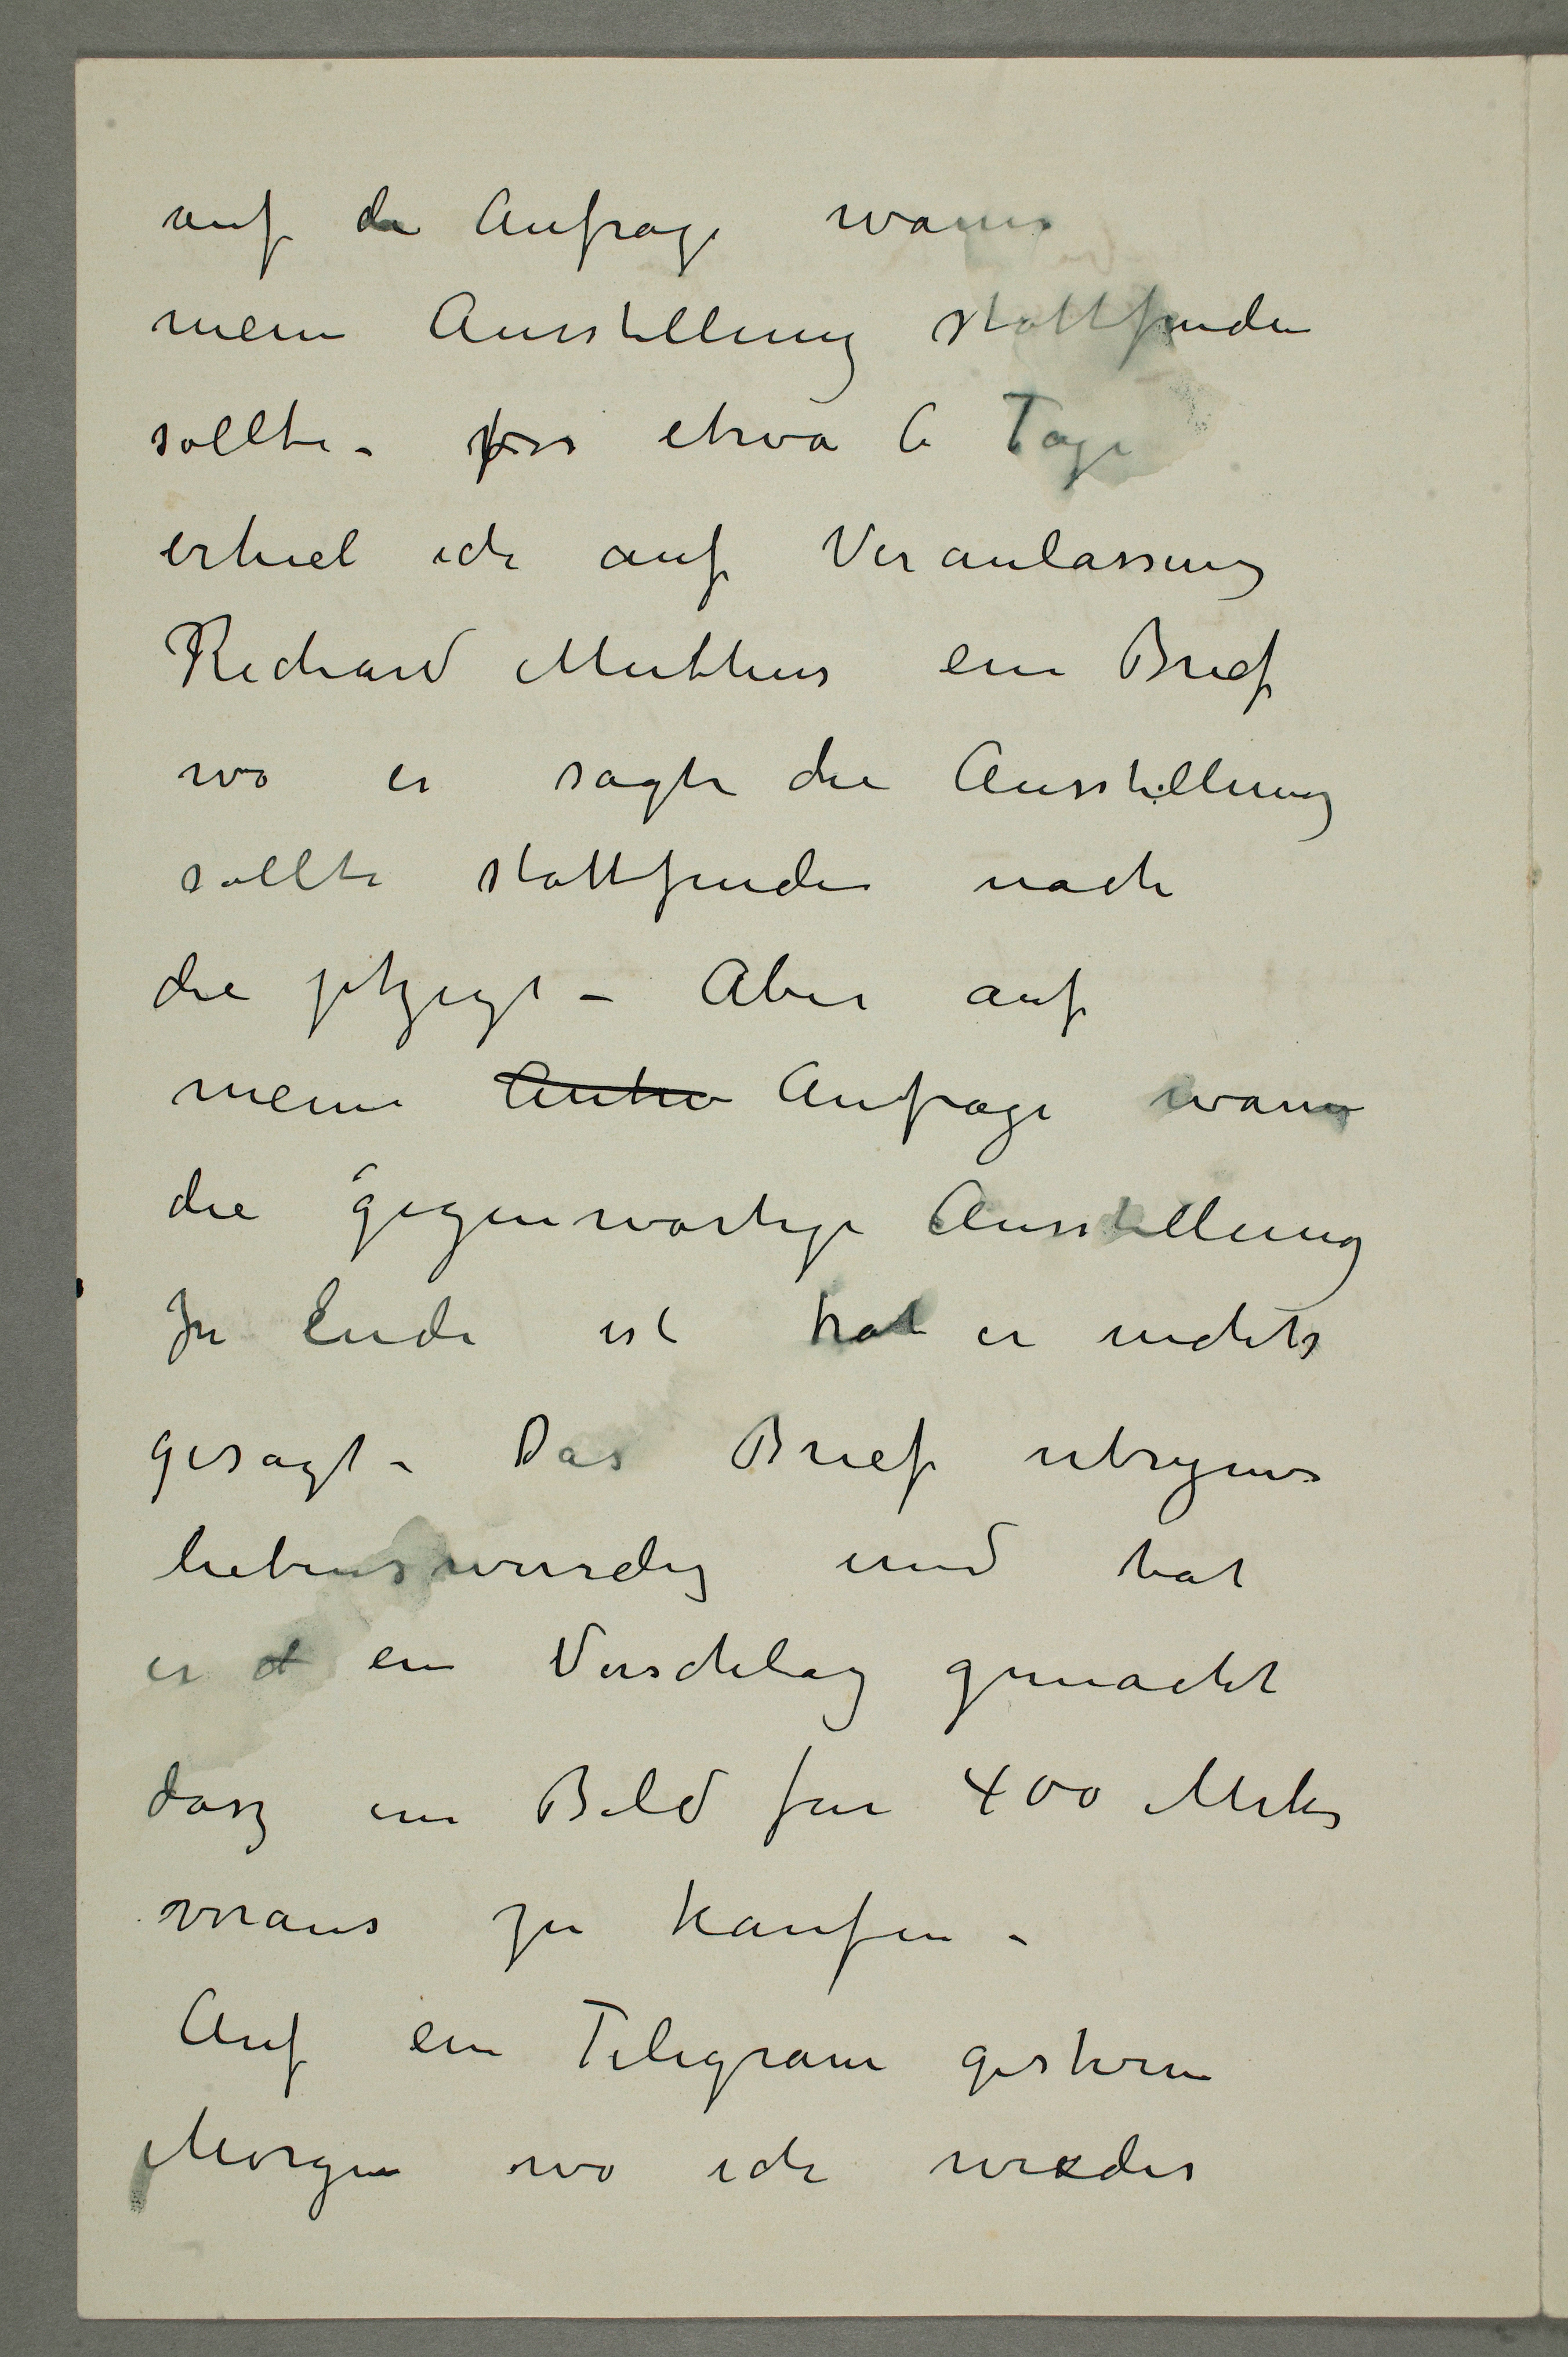 auf die Anfrage wann
meine Ausstellung stattfinden
sollte – Vor etwa 6 Tage
erhielt ich auf Veranlassung
Richard Muthers ein Brief
wo er sagte die Ausstellung
sollte stattfinden nach
die jetzige – Aber auf
meine Antw Anfrage wann
die gegenwartige Ausstellung
zu Ende ist hat er nichts
gesagt – Das Brief ubrigens
liebenswurdig und hat
er ein Vorschlag gemacht
dasz ein Bild fur 400 Mrk
voraus zu kaufen –
Auf ein Telegram gestern
Morgen wo ich wieder